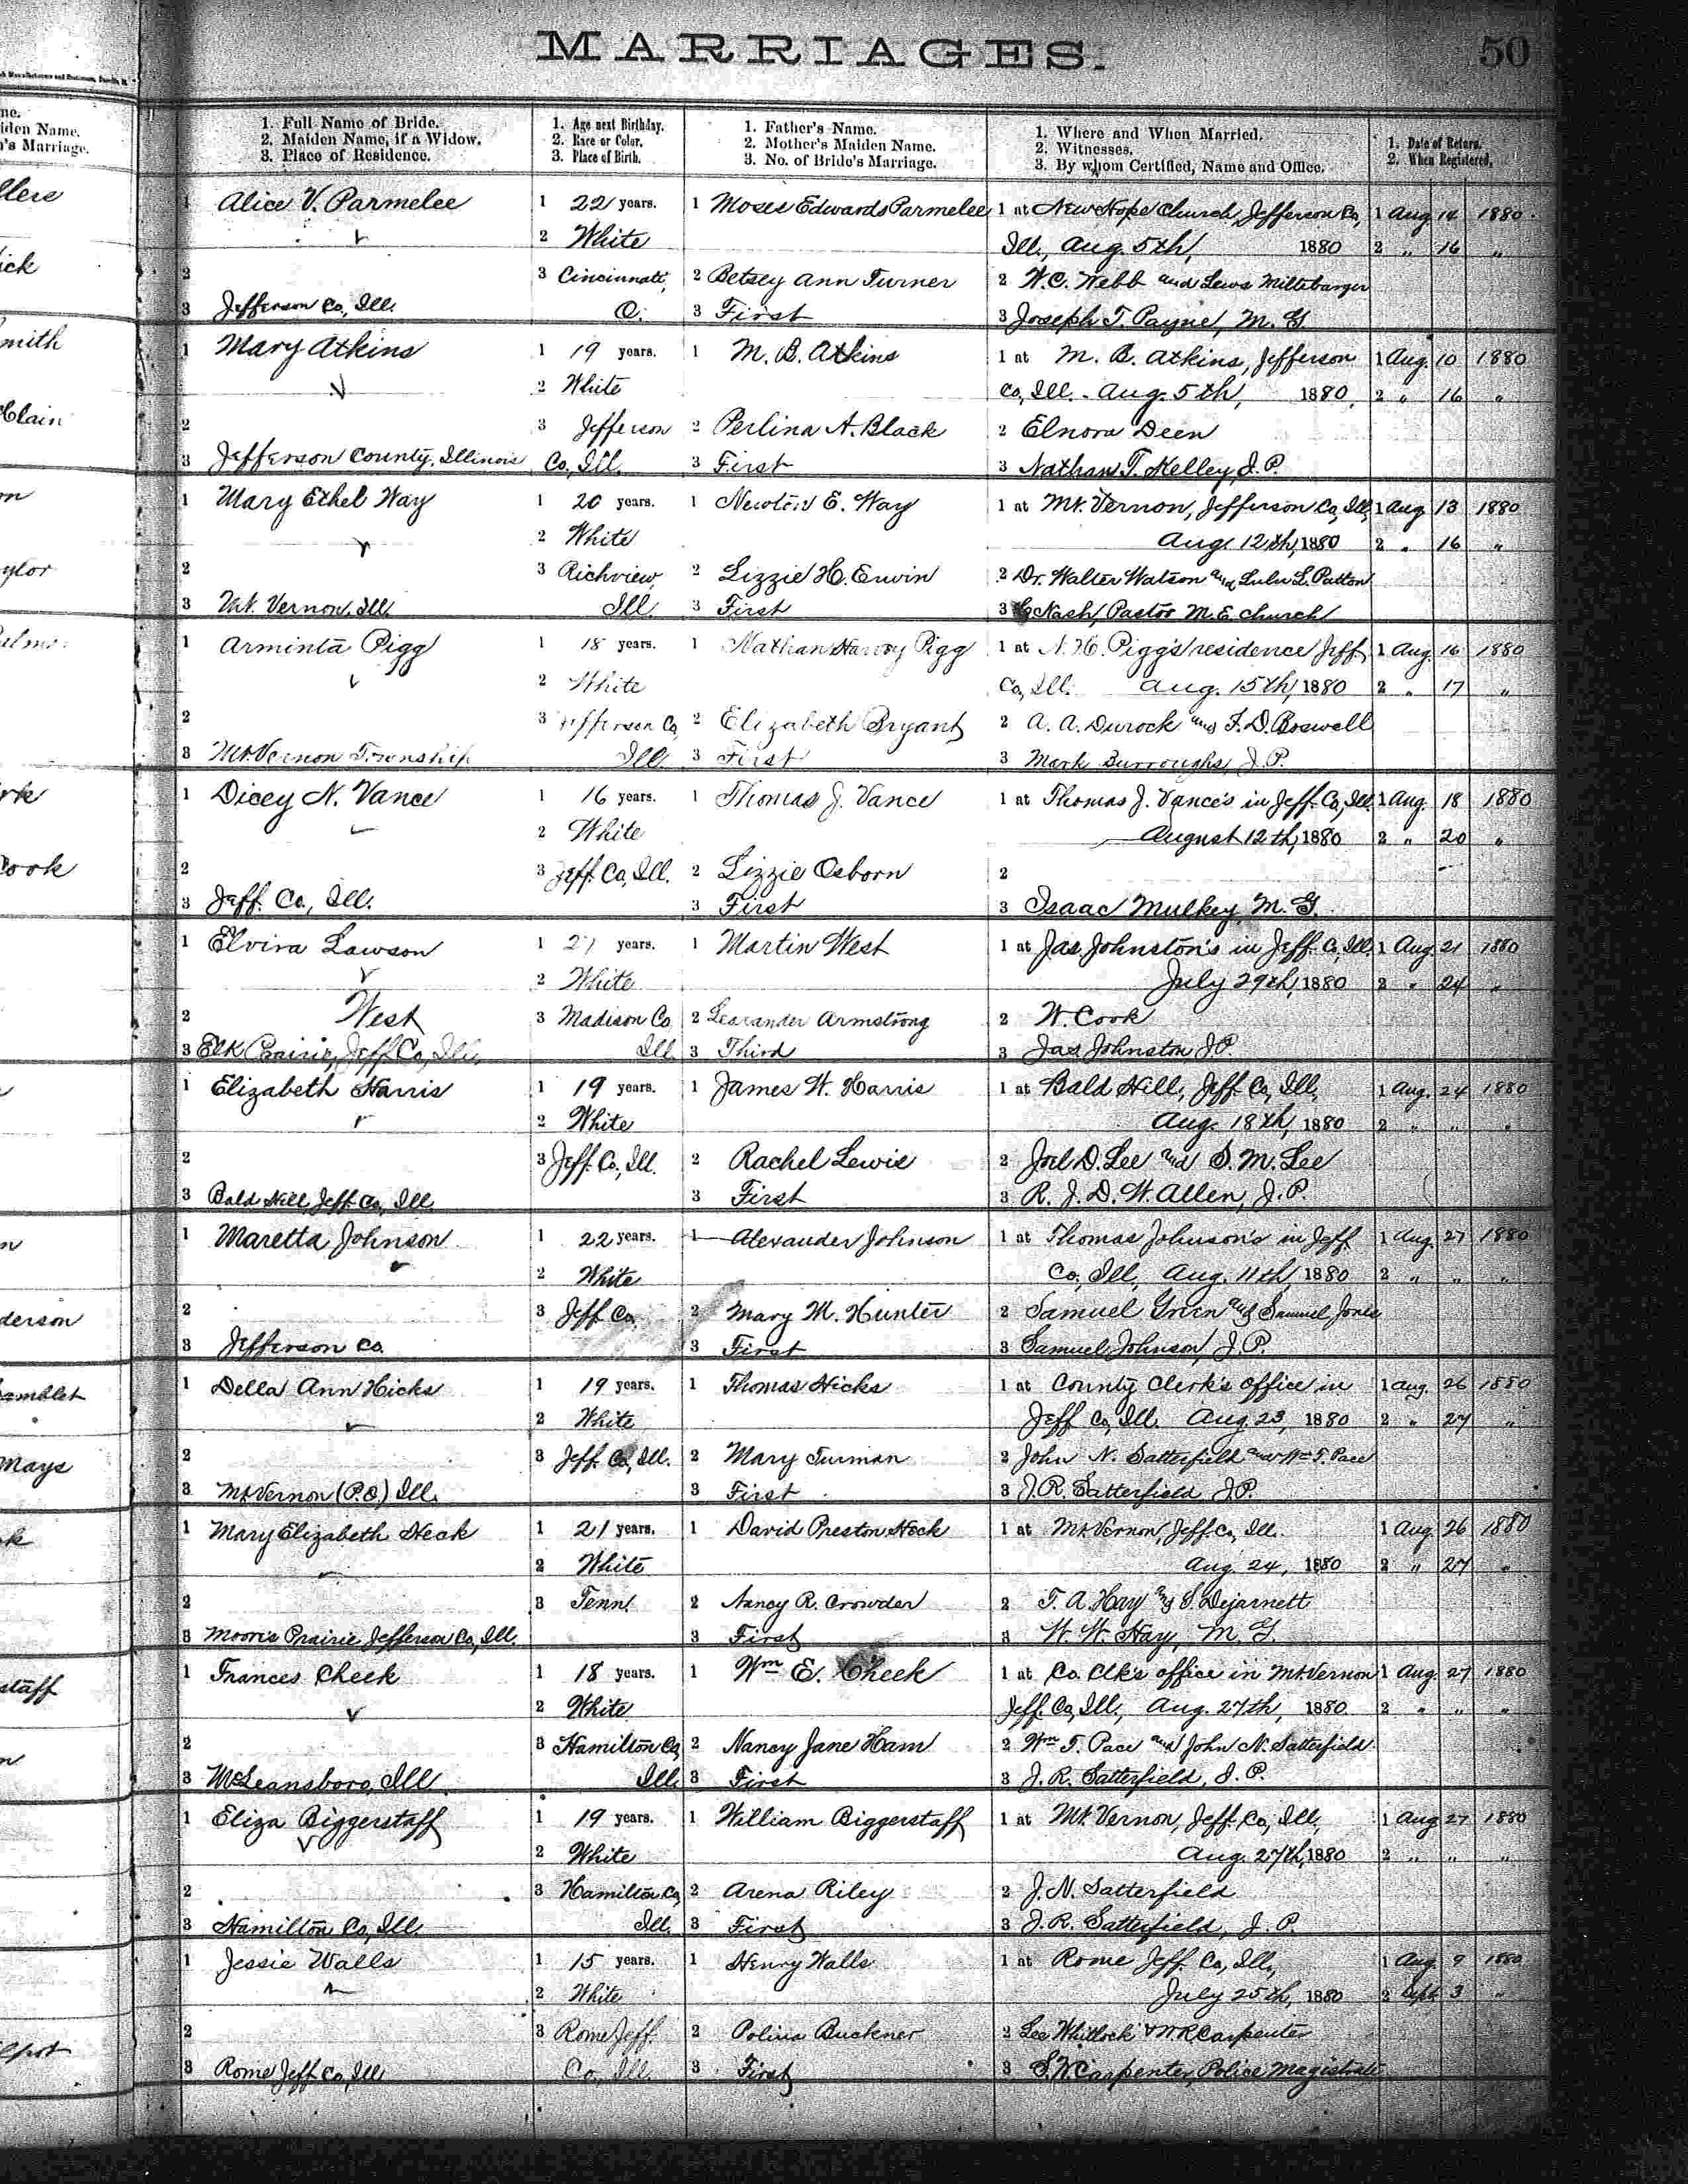 MARRIAGES.
50
1. Full Name of Bride.
2. Maiden Name, if a Widow.
3. Place of Residence.
1. Age next Birthday.
2. Race or Color.
3. Place of Birth.
1. Father's Name.
2. Mother's Maiden Name.
3. No. of Bride's Marriage.
1. Where and When Married.
2. Witnesses.
3. By whom Certified, Name and Office.
1. Date of Return.
2. When Registered.
1 Alice V. Parmelee 1 22 years. 1 Moses Edwards Parmelee 1 at New Hope Church, Jefferson Co, 1 Aug 14 1880.
2 White Ill., Aug. 5th, 1880 2 " 16 "
2 3 Cincinnati, 2 Betsey Ann Turner 2 W. C. Webb and Lewis Miltebarger
3 Jefferson Co, Ill. O. 3 First 3 Joseph T. Payne, M. G.
1 Mary Atkins 1 19 years. 1 M. B. Atkins 1 at M. B. Atkins, Jefferson 1 Aug. 10 1880
2 White Co, Ill. - Aug. 5th, 1880, 2 " 16 "
2 3 Jefferson 2 Perlina A. Black 2 Elnora Deen
3 Jefferson County, Illinois Co, Ill. 3 First 3 Nathan T. Kelley, J. P.
1 Mary Ethel Way 1 20 years. 1 Newton E. Way 1 at Mt. Vernon, Jefferson Co, Ill, 1 Aug 13 1880
2 White Aug. 12th, 1880 2 " 16 "
2 3 Richview, 2 Lizzie H. Erwin 2 Dr. Walter Watson and Lulu L. Patton
3 Mt. Vernon, Ill. Ill. 3 First 3 Nash, Pastor M. E. church
1 Arminta Pigg 1 18 years. 1 Nathan Harvey Pigg 1 at N. H. Pigg's residence Jeff 1 Aug. 16 1880
2 White Co, Ill. Aug. 15th, 1880 2 " 17 "
2 3 Jefferson Co, 2 Elizabeth Bryant 2 A. A. Durock and F. D. Boswell
3 Mt. Vernon Township Ill. 3 First 3 Mark Burroughs, J. P.
1 Dicey N. Vance 1 16 years. 1 Thomas J. Vance 1 at Thomas J. Vance's in Jeff. Co, Ill. 1 Aug. 18 1880
2 White August 12th, 1880 2 " 20 "
2 3 Jeff. Co, Ill. 2 Lizzie Osborn 2
3 Jeff. Co, Ill. 3 First 3 Isaac Mulkey M. G.
1 Elvira Lawson 1 years. 1 Martin West 1 at Jas. Johnston's in Jeff. Co, Ill. 1 Aug. 21 1880
2 White July 29th, 1880 2 " 24 "
2 West 3 Madison Co 2 Armstrong 2 W. Cook
3 Elk Prairie, Jeff Co, Ill. Ill 3 Third 3 Jas Johnston J. P.
1 Elizabeth Harris 1 19 years. 1 James W. Harris 1 at Bald Hill, Jeff. Co, Ill, 1 Aug. 24 1880
2 White Aug. 18th, 1880 2 " " "
2 3 Jeff. Co, Ill. 2 Rachel Lewis 2 Joel D. Lee and S. M. Lee
3 Bald Hill, Jeff. Co, Ill 3 First 3 R. J. D. W. Allen, J. P.
1 Maretta Johnson 1 22 years. 1 Alexander Johnson 1 at Thomas Johnson's in Jeff. 1 Aug. 27 1880
2 White Co, Ill, Aug. 11th, 1880 2 " " "
2 3 Jeff. Co, 2 Mary M. Hunter 2 Samuel Green and Samuel Jones
3 Jefferson Co. 3 First 3 Samuel Johnson, J. P.
1 Della Ann Hicks 1 19 years. 1 Thomas Hicks 1 at County Clerk's office in 1 Aug. 26 1880
2 White Jeff Co, Ill. Aug. 23, 1880 2 " 27 "
2 3 Jeff. Co, Ill. 2 Mary Turman 2 John N. Satterfield and Wm T. Pace
3 Mt. Vernon (P.O.) Ill. 3 First 3 J. R. Satterfield J. P.
1 Mary Elizabeth Heck 1 21 years. 1 David Preston Heck 1 at Mt. Vernon, Jeff Co, Ill. 1 Aug. 26 1880
2 White Aug. 24, 1880 2 " 27 "
2 3 Tenn. 2 Nancy R. Crowder 2 T. A. Hay & S. Dejarnett
3 Moore's Prairie, Jefferson Co, Ill. 3 First 3 W. W. Hay, M. G.
1 Frances Cheek 1 18 years. 1 Wm E. Cheek 1 at Co. Clk's office in Mt. Vernon 1 Aug. 27 1880
2 White Jeff. Co, Ill., Aug. 27th, 1880 2 " " "
2 3 Hamilton Co, 2 Nancy Jane Ham 2 Wm T. Pace and John N. Satterfield.
3 McLeansboro, Ill Ill. 3 First 3 J. R. Satterfield, J. P.
1 Eliza Biggerstaff 1 19 years. 1 William Biggerstaff 1 at Mt. Vernon, Jeff. Co, Ill, 1 Aug 27 1880
2 White Aug. 27th, 1880 2 " " "
2 3 Hamilton Co, 2 Arena Riley 2 J. N. Satterfield
3 Hamilton Co, Ill. Ill. 3 First 3 J. R. Satterfield, J. P.
1 Jessie Walls 1 15 years. 1 Henry Walls 1 at Rome Jeff. Co, Ill, 1 Aug 9 1880
2 White July 25th, 1880 2 Sept 3 "
2 3 Rome Jeff. 2 Polina Buckner 2 Lee Whitlock & W R Carpenter
3 Rome Jeff Co, Ill Co, Ill. 3 First 3 S. W. Carpenter, Police Magistrate